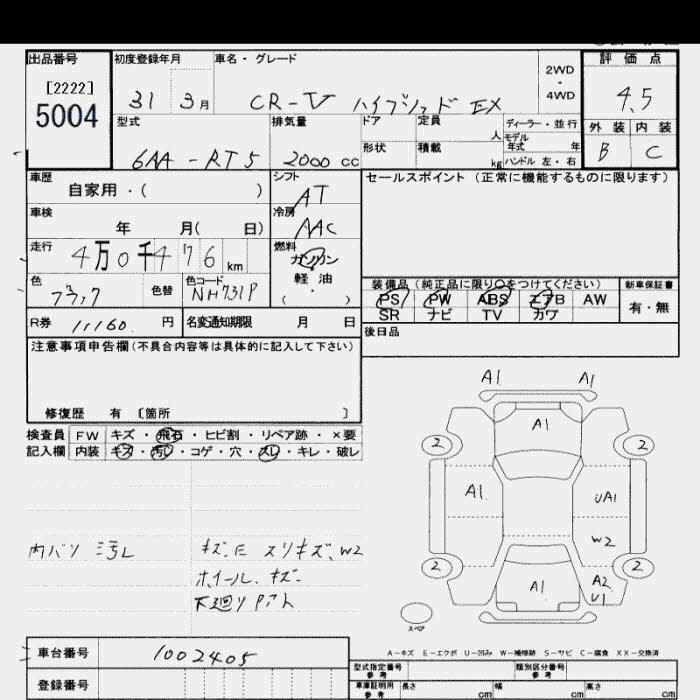 出品番号 初度登録年月 車名・グレード 評価点
[2222]
5004
31 3月 CR-V ハイブリッド EX
2WD
・
4WD
4.5
型式 排気量 ドア 定員 人 ディーラー・並行
モデル
年式 年
外装 内装
6AA-RT5 2000 cc 形状 積載 kg ハンドル 左・右 B C
車歴 自家用・( )
シフト AT
セールスポイント (正常に機能するものに限ります)
車検 年 月( 日)
冷房 AAC
走行 4万0千476 km
燃料 ガソリン
軽油
( ・ )
色 色替 色コード NH731P
装備品(純正品に限り○をつけてください) 新車保証書
PS PW ABS エアB AW 有・無
SR ナビ TV カワ
R券 11160 円 名変通知期限 月 日
後日品
注意事項申告欄(不具合内容等は具体的に記入して下さい)
修復歴 有 〔箇所 〕
検査員 FW キズ・飛石・ヒビ割・リペア跡・×要
記入欄 内装 キズ・汚レ・コゲ・穴・スレ・キレ・破レ
内バリ 汚レ キズ、E スリキズ、W2
ホイール、キズ
下廻り
A1 A1
A1
2 2
A1 UA1
W2
2 2
A1 A2
U1
スペア
A-キズ E-エクボ U-凹み W-補修跡 S-サビ C-腐食 XX-交換済
車台番号 1002405
登録番号
型式指定番号 参考 類別区分番号 参考
車庫証明用 参考 長さ cm 幅 cm 高さ cm